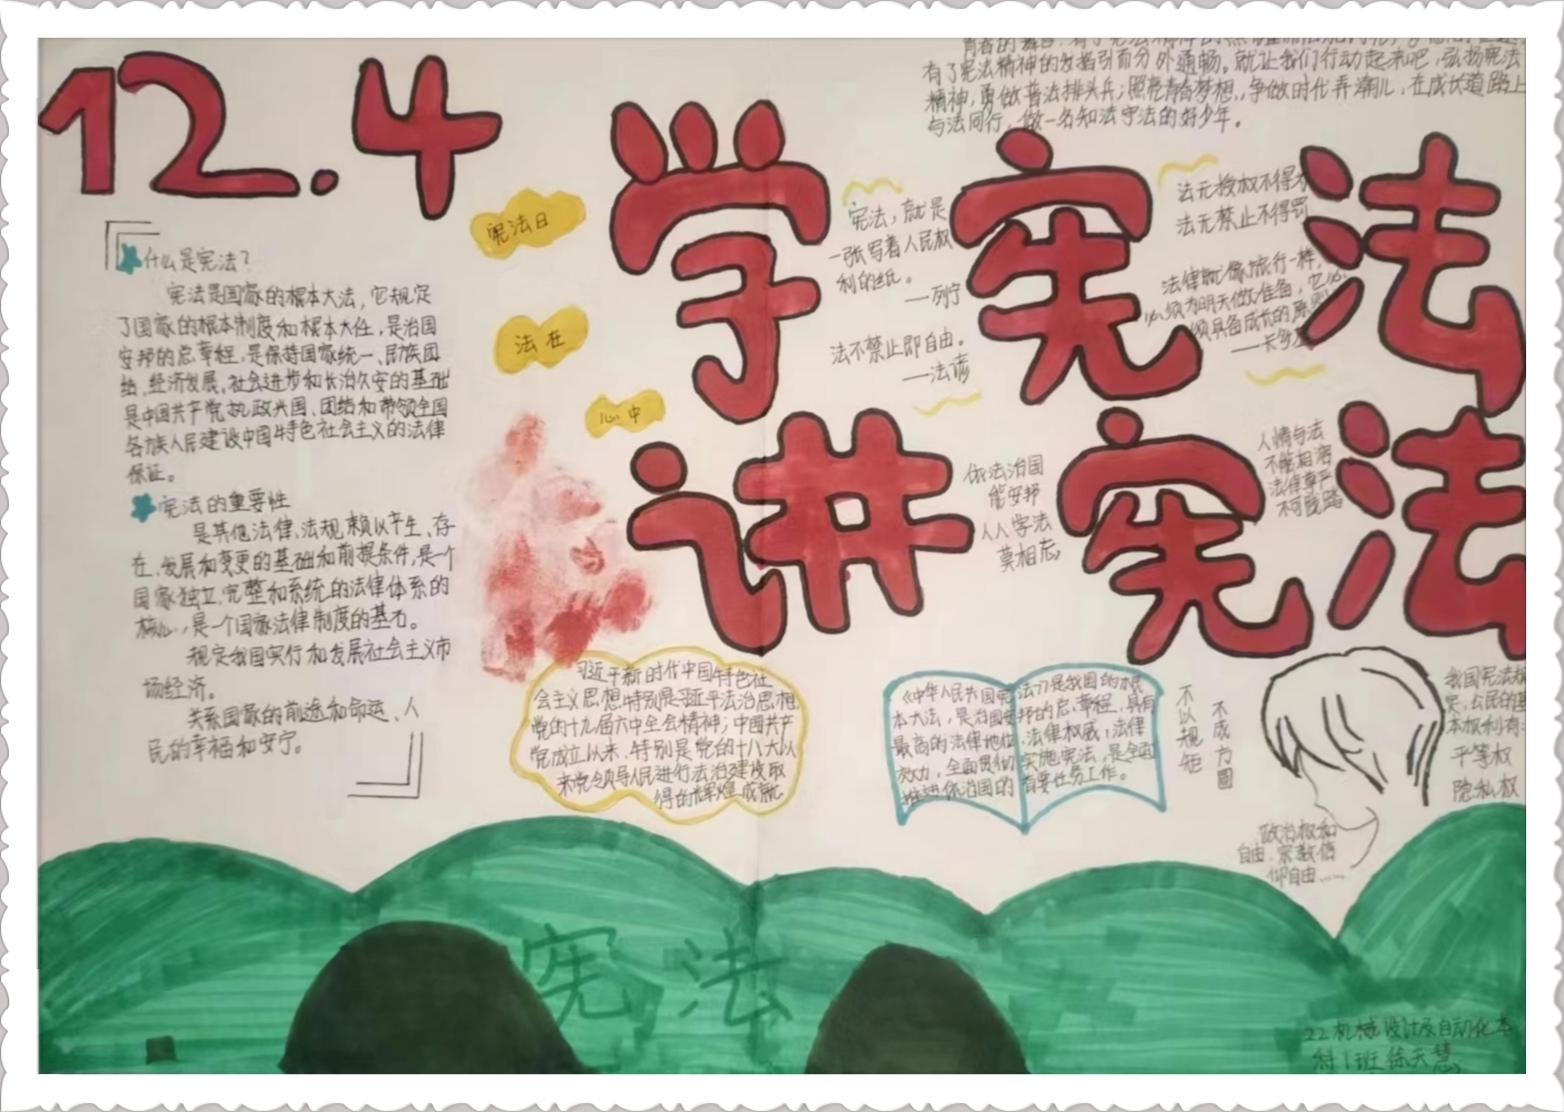 12.4
学宪法
讲宪法
有了宪法精神的发指引而分外通畅。就让我们行动起来吧,弘扬宪法
精神,勇做普法排头兵;照亮青春梦想,争做时代弄潮儿,在成长道路上
与法同行,做一名知法守法的好少年。
什么是宪法?
宪法是国家的根本大法,它规定
了国家的根本制度和根本大任,是治国
安邦的总章程,是保持国家统一、民族团
结、经济发展、社会进步和长治久安的基础
是中国共产党执政兴国、团结和带领全国
各族人民建设中国特色社会主义的法律
保证。
宪法的重要性
是其他法律、法规赖以产生、存
在、发展和变更的基础和前提条件,是一个
国家独立、完整和系统的法律体系的
核心,是一个国家法律制度的基石。
规定我国实行和发展社会主义市
场经济。
关系国家的前途和命运、人
民的幸福和安宁。
宪法日
法在
心中
宪法,就是
一张写着人民权
利的纸。
——列宁
法不禁止即自由。
——法谚
法无授权不得为
法无禁止不得罚
法律就像旅行一样,
必须为明天做准备,它必
须具备成长的原则
——卡多
依法治国
能安邦
人人学法
莫相忘
人情与法
不能相容
法律尊严
不可践踏
习近平新时代中国特色社
会主义思想特别是习近平法治思想
党的十九届六中全会精神;中国共产
党成立以来,特别是党的十八大以
来党领导人民进行法治建设取
得的辉煌成就
《中华人民共和国宪法》是我国的根
本大法,是治国安邦的总章程,具有
最高的法律地位、法律权威、法律
效力,全面贯彻实施宪法,是全面
推进依法治国的首要任务工作。
不以规矩
不成方圆
我国宪法规
定,公民的基
本权利有:
平等权
隐私权
政治权和
自由、宗教信
仰自由……
宪法
22机械设计及自动化本
科1班 徐天慧